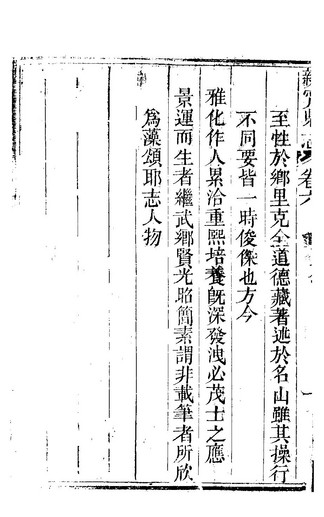 至性於鄉里克全道德藏著述於名山雖其操行
不同要皆一時俊傑也方今
雅化作人累洽重熙培養旣深發洩必茂士之應
景運而生者繼武鄉賢光昭簡素謂非載筆者所欣
爲藻頌耶志人物